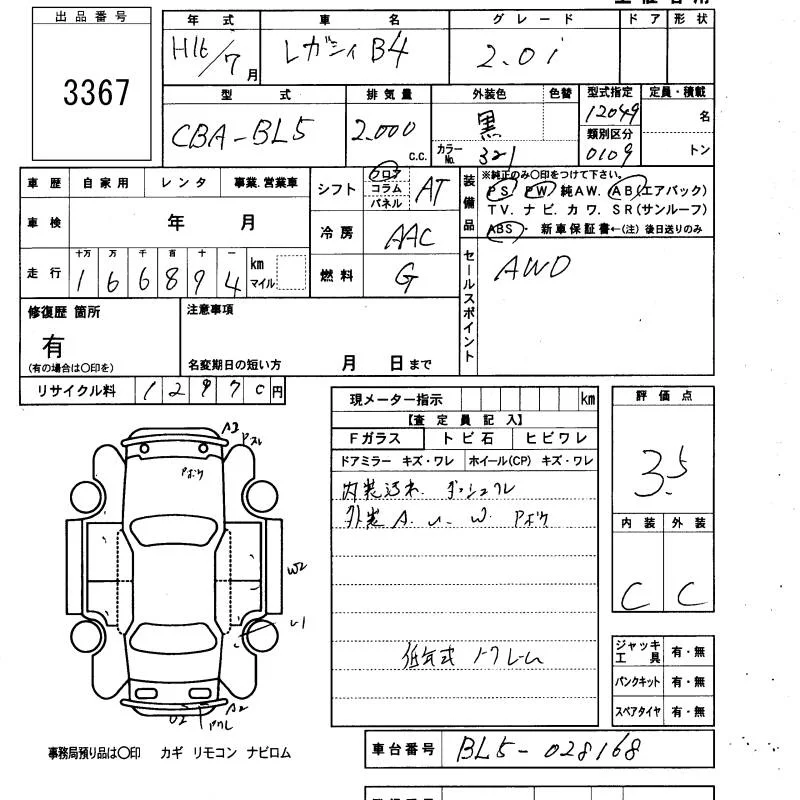 出品番号
3367
年式 車名 グレード ドア 形状
H16/7月 レガシィ B4 2.0i
型式 排気量 外装色 色替 型式指定 定員・積載
CBA-BL5 2.000 c.c. 黒 12049 名
カラーNo. 321 類別区分 0109 トン
車歴 自家用 レンタ 事業.営業車
車検 年 月
走行 十万 万 千 百 十 一 km マイル
1 6 6 8 9 4
シフト フロア コラム パネル AT
冷房 AAC
燃料 G
装備品
※純正のみ〇印をつけて下さい。
PS PW 純AW. AB(エアバック)
TV. ナビ. カワ. SR(サンルーフ)
ABS・ 新車保証書←(注) 後日送りのみ
セールスポイント
AWD
修復歴 箇所
有
(有の場合は〇印を)
注意事項
名変期日の短い方 月 日まで
リサイクル料 12970円
現メーター指示 km
【査定員記入】
Fガラス トビ石 ヒビワレ
ドアミラー キズ・ワレ ホイール(CP) キズ・ワレ
内装汚れ.
外装 A. U. W. Pボケ
評価点
3.5
内装 外装
C C
ジャッキ工具 有・無
パンクキット 有・無
スペアタイヤ 有・無
A2
Pボケ
W2
U1
U2
A2
事務局預り品は〇印 カギ リモコン ナビロム
車台番号 BL5-028168